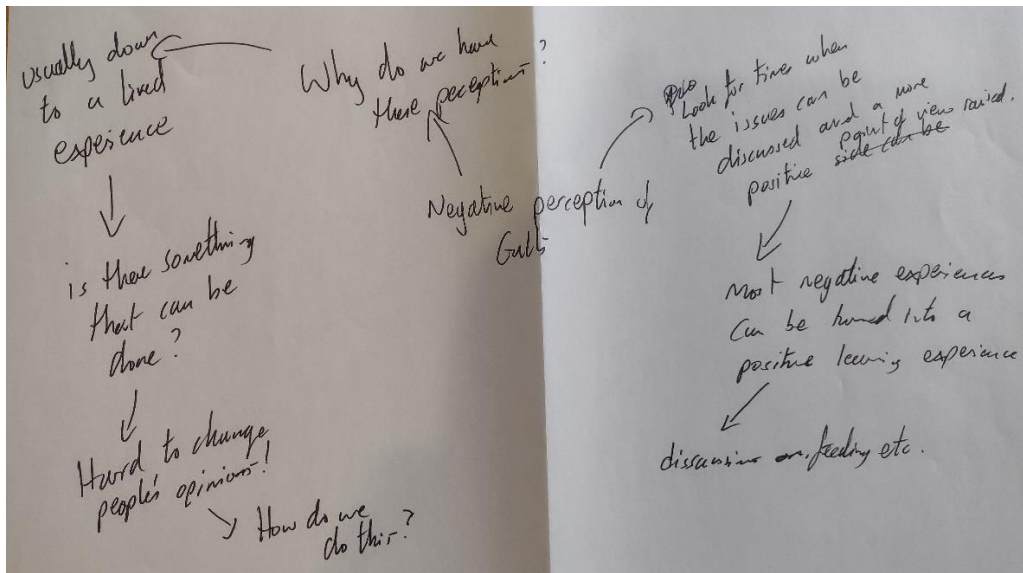 usually down
to a lived
experience
is there something
that can be
done?
Hard to change
people's opinions!
How do we
do this?
Why do we have
these perceptions?
Negative perception of
Gulls
Look for times when
the issues can be
discussed and a more
positive side can be
point of view raised.
Most negative experiences
can be turned into a
positive learning experience
discussion on feeding etc.